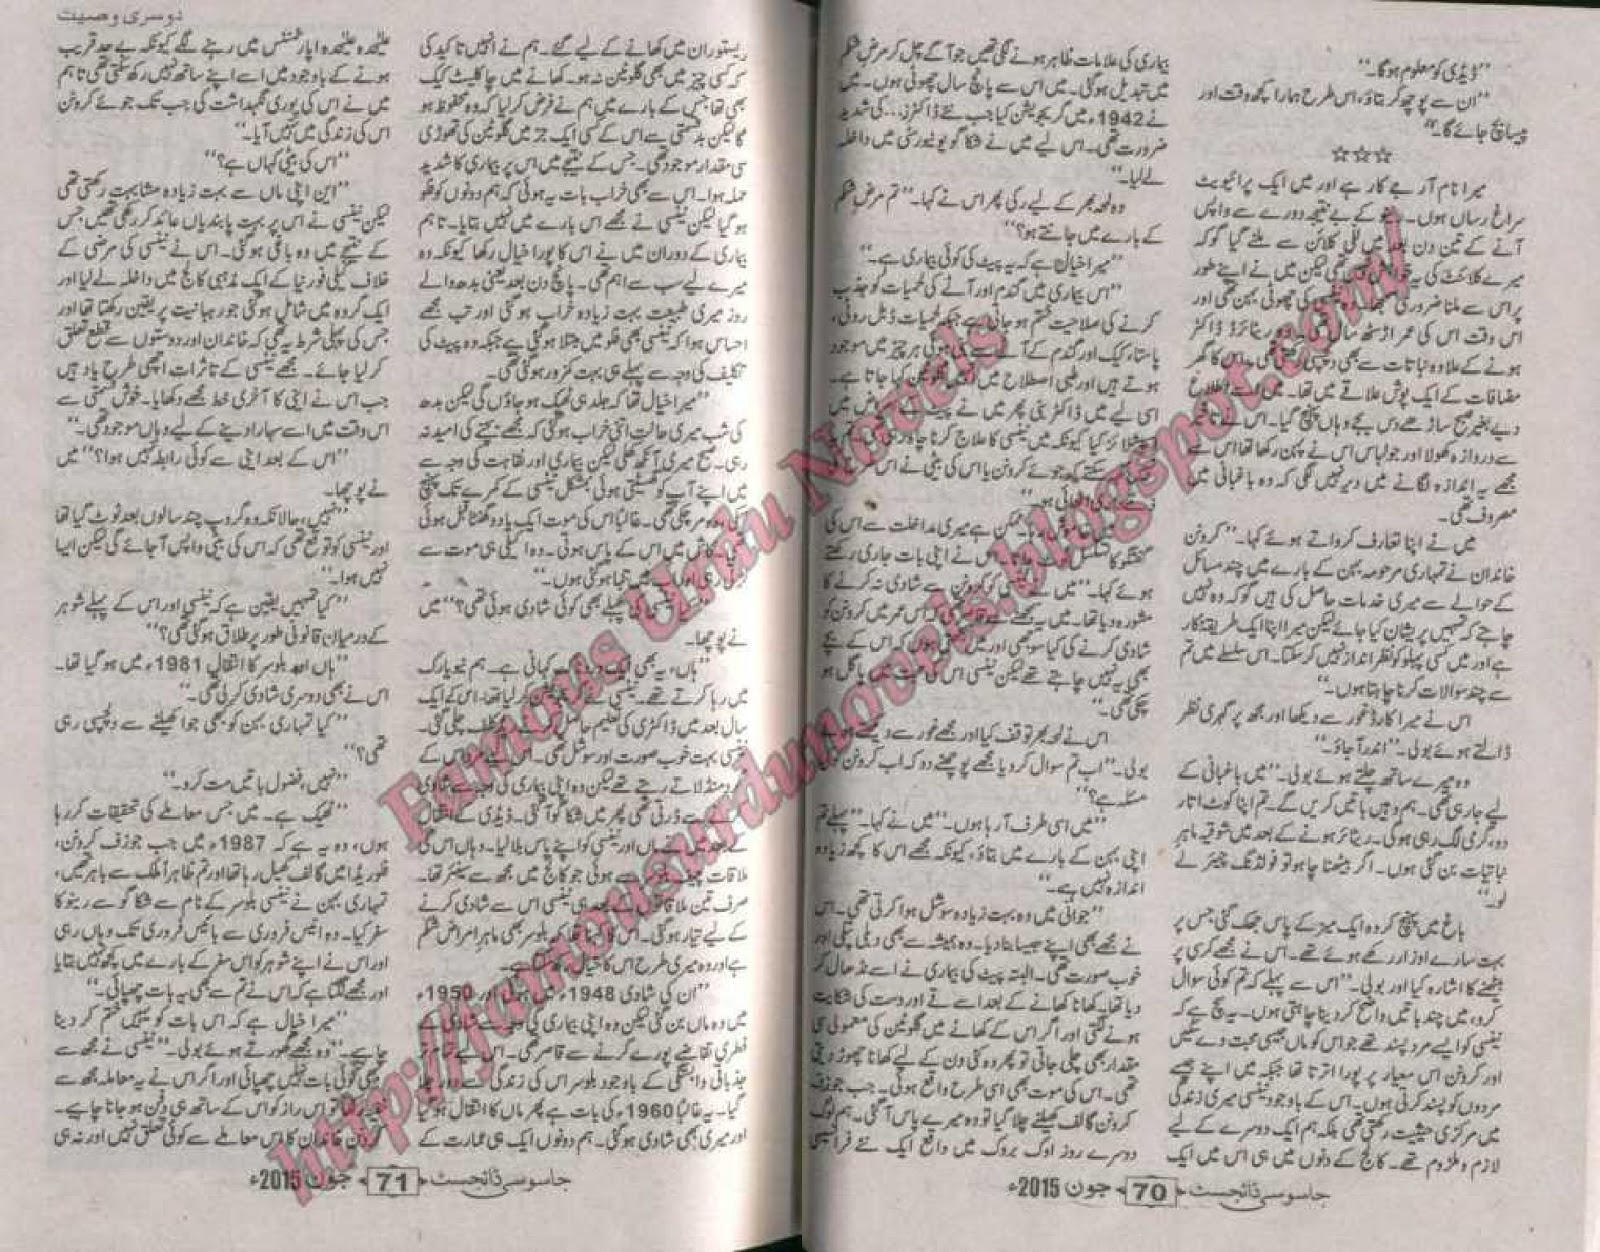 دوسری وصیت
”ڈیڈی کو معلوم ہوگا۔“
”ان سے پوچھ کر بتاؤ، اس طرح ہمارا کچھ وقت اور
پیسا بچ جائے گا۔“
☆☆☆
میرا نام آر جے کار ہے اور میں ایک پرائیویٹ
سراغ رساں ہوں۔ کے بے نتیجہ دورے سے واپس
آنے کے تین دن بعد میں للی کلائن سے ملنے گیا گوکہ
میرے کلائنٹ کی یہ تھی لیکن میں نے اپنے طور
پر اس سے ملنا ضروری کی چھوٹی بہن تھی اور
اس وقت اس کی عمر اڑسٹھ سال وہ ریٹائرڈ ڈاکٹر
ہونے کے علاوہ نباتات سے بھی تھی۔ اس کا گھر
مضافات کے ایک پوش علاقے میں تھا۔ میں اطلاع
دیے بغیر صبح ساڑھے دس بجے وہاں پہنچ گیا۔ اس نے
سے دروازہ کھولا اور جو لباس اس نے پہن رکھا تھا اس سے
مجھے یہ اندازہ لگانے میں دیر نہیں لگی کہ وہ باغبانی میں
مصروف تھی۔
میں نے اپنا تعارف کرواتے ہوئے کہا۔ ”کروٹن
خاندان نے تمہاری مرحومہ بہن کے بارے میں چند مسائل
کے حوالے سے میری خدمات حاصل کی ہیں گوکہ وہ نہیں
چاہتے کہ تمہیں پریشان کیا جائے لیکن میرا اپنا ایک طریقہ کار
ہے اور میں کسی پہلو کو نظرانداز نہیں کر سکتا۔ اس سلسلے میں تم
سے چند سوالات کرنا چاہتا ہوں۔“
اس نے میرا کارڈ غور سے دیکھا اور مجھ پر گہری نظر
ڈالتے ہوئے بولی۔ ”اندر آ جاؤ۔“
وہ میرے ساتھ چلتے ہوئے بولی۔ ”میں باغبانی کے
لیے جا رہی تھی۔ ہم وہیں باتیں کریں گے۔ تم اپنا کوٹ اتار
دو، گرمی لگ رہی ہوگی۔ ریٹائر ہونے کے بعد میں شوقیہ ماہر
نباتیات بن گئی ہوں۔ اگر بیٹھنا چاہو تو فولڈنگ چیئر لے
لو۔“
باغ میں پہنچ کر وہ ایک میز کے پاس جھک گئی جس پر
بہت سارے اوزار رکھے ہوئے تھے۔ اس نے مجھے کرسی پر
بیٹھنے کا اشارہ کیا اور بولی۔ ”اس سے پہلے کہ تم کوئی سوال
کرو، میں چند باتیں واضح کر دینا چاہتی ہوں۔ یہ سچ ہے کہ
نینسی کو ایسے مرد پسند تھے جو اس کو ماں جیسی محبت دے سکیں
اور کروٹن اس معیار پر پورا اترتا تھا جبکہ میں اپنے جیسے
مردوں کو پسند کرتی ہوں۔ اس کے باوجود نینسی میری زندگی
میں مرکزی حیثیت رکھتی تھی بلکہ ہم ایک دوسرے کے لیے
لازم و ملزوم تھے۔ کالج کے دنوں میں ہی اس میں ایک
بیماری کی علامات ظاہر ہونے لگی تھیں جو آگے چل کر مرض شکم
میں تبدیل ہوگئی۔ میں اس سے پانچ سال چھوٹی ہوں۔ میں
نے 1942ء میں گریجویشن کیا جب نئے ڈاکٹرز... کی شدید
ضرورت تھی۔ اس لیے میں نے شکاگو یونیورسٹی میں داخلہ
لے لیا۔“
وہ لمحہ بھر کے لیے رکی پھر اس نے کہا۔ ”تم مرض شکم
کے بارے میں جانتے ہو؟“
”میرا خیال ہے کہ یہ پیٹ کی کوئی بیماری ہے۔“
”اس بیماری میں گندم اور آٹے کی لحمیات کو جذب
کرنے کی صلاحیت ختم ہو جاتی ہے جبکہ لحمیات ڈبل روٹی،
پاستا، کیک اور گندم کے آٹے سے ہر چیز میں موجود
ہوتے ہیں اور طبی اصطلاح میں کہا جاتا ہے۔
اسی لیے میں ڈاکٹر بنی پھر میں نے پیٹ میں
کیا کیونکہ میں نینسی کا علاج کرنا چاہتی
کہہ سکتے کہ جوئے کروٹن یا اس کی بیٹی نے اس
ہو۔“
ممکن ہے میری مداخلت سے اس کی
گفتگو کا تسلسل نے اپنی بات جاری رکھتے
ہوئے کہا۔ ”میں نے کو کروٹن سے شادی نہ کرنے کا
مشورہ دیا تھا۔ میں یہ اس عمر میں کروٹن کو
شادی کرنے کی کیا سوجھی اور میں ہوں کہ اس کے بچے
بھی یہ نہیں چاہتے تھے لیکن نینسی اس کی میں پاگل ہو
چکی تھی۔“
اس نے لمحہ بھر توقف کیا اور مجھے غور سے دیکھتے ہوئے
بولی۔ ”اب تم سوال کرو یا مجھے پوچھنے دو کہ اب کروٹن
مسئلہ ہے؟“
”میں اسی طرف آ رہا ہوں۔“ میں نے کہا۔ ”پہلے تم
اپنی بہن کے بارے میں بتاؤ، کیونکہ مجھے اس کا کچھ زیادہ
اندازہ نہیں ہے۔“
”جوانی میں وہ بہت زیادہ سوشل ہوا کرتی تھی۔ اس
نے مجھے بھی اپنے جیسا بنا دیا۔ وہ ہمیشہ سے بھی دبلی پتلی اور
خوب صورت تھی۔ البتہ پیٹ کی بیماری نے اسے نڈھال کر
دیا تھا۔ کھانا کھانے کے بعد اسے قے اور دست کی شکایت
ہونے لگتی اور اگر اس کے کھانے میں گلوٹین کی معمولی سی
مقدار بھی چلی جاتی تو پھر وہ کئی دن کے لیے کھانا چھوڑ دیتی
تھی۔ اس کی موت بھی اسی طرح واقع ہوئی۔ جب جوزف
کروٹن گالف کھیلنے چلا گیا تو وہ میرے پاس آ گئی۔ ہم لوگ
دوسرے روز اوک بروک میں واقع ایک نئے فرانسیسی
جاسوسی ڈائجسٹ ◄70► جون 2015ء
ریستوران میں کھانے کے لیے گئے۔ ہم نے انہیں تاکید کی
کہ کسی چیز میں بھی گلوٹین نہ ہو۔ کھانے میں چاکلیٹ کیک
بھی تھا جس کے بارے میں ہم نے فرض کر لیا کہ وہ محفوظ ہو
گا لیکن بدقسمتی سے اس کے کسی ایک جز میں گلوٹین کی تھوڑی
سی مقدار موجود تھی۔ جس کے نتیجے میں اس پر بیماری کا شدید
حملہ ہوا۔ اس سے بھی خراب بات یہ ہوئی کہ ہم دونوں کو فلو
ہو گیا لیکن نینسی نے مجھے اس بارے میں نہیں بتایا۔ تاہم
بیماری کے دوران میں نے اس کا پورا خیال رکھا کیونکہ وہ
میرے لیے سب سے اہم تھی۔ پانچ دن بعد یعنی بدھ والے
روز میری طبیعت بہت زیادہ خراب ہو گئی اور تب مجھے
احساس ہوا کہ نینسی بھی فلو میں مبتلا ہو گئی ہے جبکہ وہ پیٹ کی
تکلیف کی وجہ سے پہلے ہی بہت کمزور ہو گئی تھی۔
”میرا خیال تھا کہ جلد ہی ٹھیک ہو جاؤں گی لیکن بدھ
کی شب میری حالت اتنی خراب ہو گئی کہ مجھے بچنے کی امید نہ
رہی۔ صبح میری آنکھ کھلی لیکن بیماری اور نقاہت کی وجہ سے
میں اپنے آپ کو گھسیٹتی ہوئی بمشکل نینسی کے کمرے تک پہنچ
مر چکی تھی۔ غالباً اس کی موت ایک یا دو گھنٹا قبل ہوئی
کاش میں اس کے پاس ہوتی۔ وہ اکیلی ہی موت سے
رہی اور اب میں تنہا ہو گئی ہوں۔“
نینسی کی پہلے بھی کوئی شادی ہوئی تھی؟“ میں
نے پوچھا۔
”ہاں، یہ بھی ایک کہانی ہے۔ ہم نیویارک
میں رہا کرتے تھے۔ نینسی نے کر لیا تھا۔ اس کے ایک
سال بعد میں ڈاکٹری کی تعلیم حاصل چلی گئی۔
نینسی بہت خوب صورت اور سوشل تھی۔ اس کے
گرد منڈلاتے رہتے تھے لیکن وہ اپنی بیماری کی وجہ سے شادی
سے ڈرتی تھی پھر میں شکاگو آ گئی۔ ڈیڈی کے انتقال
کے بعد میں نے ماں اور نینسی کو اپنے پاس بلا لیا۔ وہاں اس کی
ملاقات سے ہوئی جو کالج میں مجھ سے سینئر تھا۔
صرف تین ملاقاتوں کے بعد ہی نینسی اس سے شادی کرنے
کے لیے تیار ہو گئی۔ اس بلوسر بھی ماہر امراض شکم
ہے اور وہ میری طرح اس کا خیال ہے۔
”ان کی شادی 1948ء میں ہوئی اور 1950ء
میں وہ ماں بن گئی لیکن وہ اپنی بیماری کی وجہ سے شادی کے
فطری تقاضے پورے کرنے سے قاصر تھی۔ اس لیے
جذباتی وابستگی کے باوجود بلوسر اس کی زندگی سے دور چلا
گیا۔ یہ غالباً 1960ء کی بات ہے پھر ماں کا انتقال ہو گیا
اور میری بھی شادی ہو گئی۔ ہم دونوں ایک ہی عمارت کے
علیحدہ علیحدہ اپارٹمنٹس میں رہنے لگے کیونکہ بے حد قریب
ہونے کے باوجود میں اسے اپنے ساتھ نہیں رکھ سکتی تھی تاہم
میں نے اس کی پوری نگہداشت کی جب تک جوئے کروٹن
اس کی زندگی میں نہیں آیا۔“
”اس کی بیٹی کہاں ہے؟“
”این اپنی ماں سے بہت زیادہ مشابہت رکھتی تھی
لیکن نینسی نے اس پر بہت پابندیاں عائد کر رکھی تھیں جس
کے نتیجے میں وہ باغی ہو گئی۔ اس نے نینسی کی مرضی کے
خلاف کیلی فورنیا کے ایک مذہبی کالج میں داخلہ لے لیا اور
ایک گروہ میں شامل ہو گئی جو رہبانیت پر یقین رکھتا تھا اور
جس کی پہلی شرط یہ تھی کہ خاندان اور دوستوں سے قطع تعلق
کر لیا جائے۔ مجھے نینسی کے تاثرات اچھی طرح یاد ہیں
جب اس نے اینی کا آخری خط مجھے دکھایا۔ خوش قسمتی سے
اس وقت میں اسے سہارا دینے کے لیے وہاں موجود تھی۔“
”اس کے بعد اینی سے کوئی رابطہ نہیں ہوا؟“ میں
نے پوچھا۔
”نہیں، حالانکہ وہ گروپ چند سالوں بعد ٹوٹ گیا تھا
اور نینسی کو توقع تھی کہ اس کی بیٹی واپس آ جائے گی لیکن ایسا
نہیں ہوا۔“
”کیا تمہیں یقین ہے کہ نینسی اور اس کے پہلے شوہر
کے درمیان قانونی طور پر طلاق ہو گئی تھی؟“
”ہاں البتہ بلوسر کا انتقال 1981ء میں ہو گیا تھا۔
اس نے بھی دوسری شادی کر لی تھی۔“
”کیا تمہاری بہن کو بھی جوا کھیلنے سے دلچسپی رہی
تھی؟“
”نہیں، فضول باتیں مت کرو۔“
”ٹھیک ہے۔ میں جس معاملے کی تحقیقات کر رہا
ہوں، وہ یہ ہے کہ 1987ء میں جب جوزف کروٹن،
فلوریڈا میں گالف کھیل رہا تھا اور تم ظاہراً ملک سے باہر تھیں،
تمہاری بہن نے نینسی بلوسر کے نام سے شکاگو سے رینو کا
سفر کیا۔ وہ انیس فروری سے بائیس فروری تک وہاں رہی
اور اس نے اپنے شوہر کو اس سفر کے بارے میں کچھ نہیں بتایا
اور مجھے لگتا ہے کہ اس نے تم سے بھی یہ بات چھپائی۔“
”میرا خیال ہے کہ اس بات کو یہیں ختم کر دینا
چاہیے۔“ وہ مجھے گھورتے ہوئے بولی۔ ”نینسی نے مجھ سے
کبھی کوئی بات نہیں چھپائی اور اگر اس نے یہ معاملہ مجھ سے
رکھا تو اس راز کو اس کے ساتھ ہی دفن ہو جانا چاہیے۔
کروٹن خاندان کا اس معاملے سے کوئی تعلق نہیں اور نہ ہی
جاسوسی ڈائجسٹ ◄71► جون 2015ء
Famous Urdu Novels
http://famousurdunovels.blogspot.com/